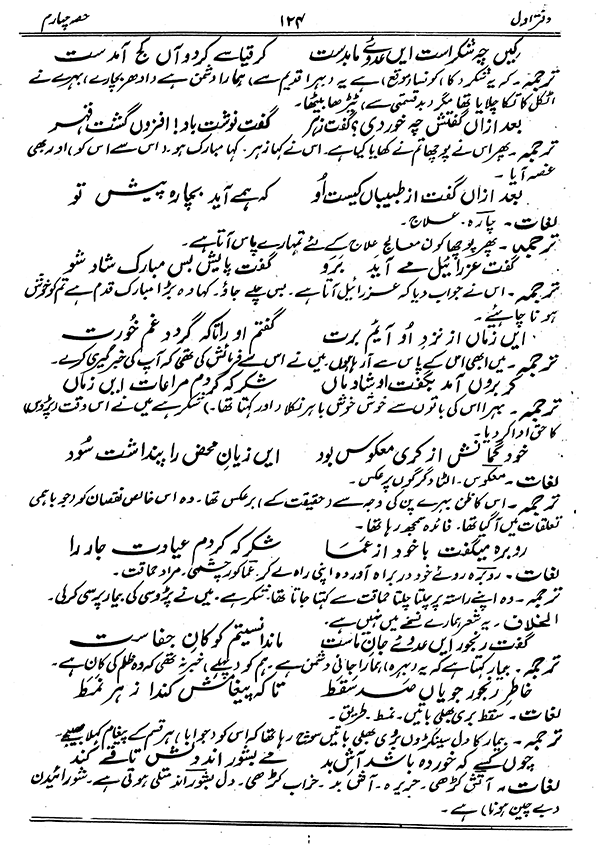 دفتر اول ۱۲۴ حصہ چہارم
کیں چہ شکر است ایں عدوئے ما بدست کر قیاسے کرد و آں کج آمدست
ترجمہ۔ کہ یہ شکر (کا کونسا موقع) ہے یہ (بہرا قدیم سے) ہمارا دشمن ہے (ادھر بیچارے) بہرے نے
اٹکل کا تکا چلایا تھا مگر (بدقسمتی سے) ٹیڑھا بیٹھا۔
بعد ازاں گفتش چہ خوردی؟ گفت زہر گفت نوشت باد! افزوں گشت قہر
ترجمہ۔ پھر اس نے پوچھا تم نے کھایا کیا ہے۔ اس نے کہا زہر۔ کہا مبارک ہو۔ (اس سے اس کو) اور بھی
غصہ آیا۔
بعد ازاں گفت از طبیباں کیست اُو کہ ہمے آید بچارہ پیش تو
لغات۔ چارہ۔ علاج۔
ترجمہ۔ پھر پوچھا کون معالج علاج کے لئے تمہارے پاس آتا ہے۔
گفت عزرائیل مے آید برَو گفت پایش بس مبارک شاد شو
ترجمہ۔ اس نے جواب دیا کہ عزرائیل آتا ہے۔ بس چلے جاؤ۔ کہا وہ بڑا مبارک قدم ہے تم کو خوش
ہونا چاہئے۔
ایں زماں از نزدِ اُو آیم برت گفتم او را تا کہ گردد غم خورت
ترجمہ۔ میں ابھی اس کے پاس سے آ رہا ہوں۔ میں نے اس سے فرمائش کی تھی کہ آپ کی خبر گیری کرے۔
کر بروں آمد بگفت او شادماں شکر کہ کردم مراعات ایں زماں
ترجمہ۔ بہرا اس کی باتوں سے خوش خوش باہر نکلا اور کہتا تھا۔ شکر ہے میں نے اس وقت (پڑوس)
کا حق ادا کر دیا۔
خود گمانش از کری معکوس بود ایں زیانِ محض را پنداشت سُود
لغات۔ معکوس۔ الٹا دگرگوں برعکس۔
ترجمہ۔ اس کا ظن بہرے پن کی وجہ سے (حقیقت کے) برعکس تھا۔ وہ اس خالص نقصان کو (جو باہمی
تعلقات میں آ گیا تھا۔ فائدہ سمجھ رہا تھا۔
روبرہ میگفت با خود از عما شکر کہ کردم عیادت جار را
لغات۔ روبرہ روئے خود در براہ آوردہ اپنی راہ لے کر عما کور چشمی۔ مراد حماقت۔
ترجمہ۔ وہ اپنے راستہ پر چلتا چلتا حماقت سے کہتا جاتا تھا۔ شکر ہے۔ میں نے پڑوسی کی بیمار پرسی کر لی۔
الخلاف۔ یہ شعر ہمارے نسخے میں نہیں ہے۔
گفت رنجور ایں عدوئے جانِ ماست ما ندانستیم کو کانِ جفاست
ترجمہ۔ بیمار کہتا ہے کہ یہ (بہرہ) ہمارا جانی دشمن ہے۔ ہم کو (پہلے) خبر نہ تھی کہ وہ ظلم کی کان ہے۔
خاطرِ رنجور جویاں صد سقط تا کہ پیغامش کند از ہر نمط
لغات۔ سقط بری بھلی باتیں۔ نمط۔ طریق۔
ترجمہ۔ بیمار کا دل سینکڑوں بری بھلی باتیں سوچ رہا تھا کہ اس کو (جوابا) ہر قسم کے پیغام کہلا بھیجے۔
چوں کسے کہ خوردہ باشد آشِ بد مے بشوراند دلش تا قے کند
لغات۔ آش کڑھی۔ حریرہ۔ آشِ بد۔ خراب کڑھی۔ دل بشوراند متلی ہوتی ہے۔ شورائیدن
(بے چین ہونا) ہے۔